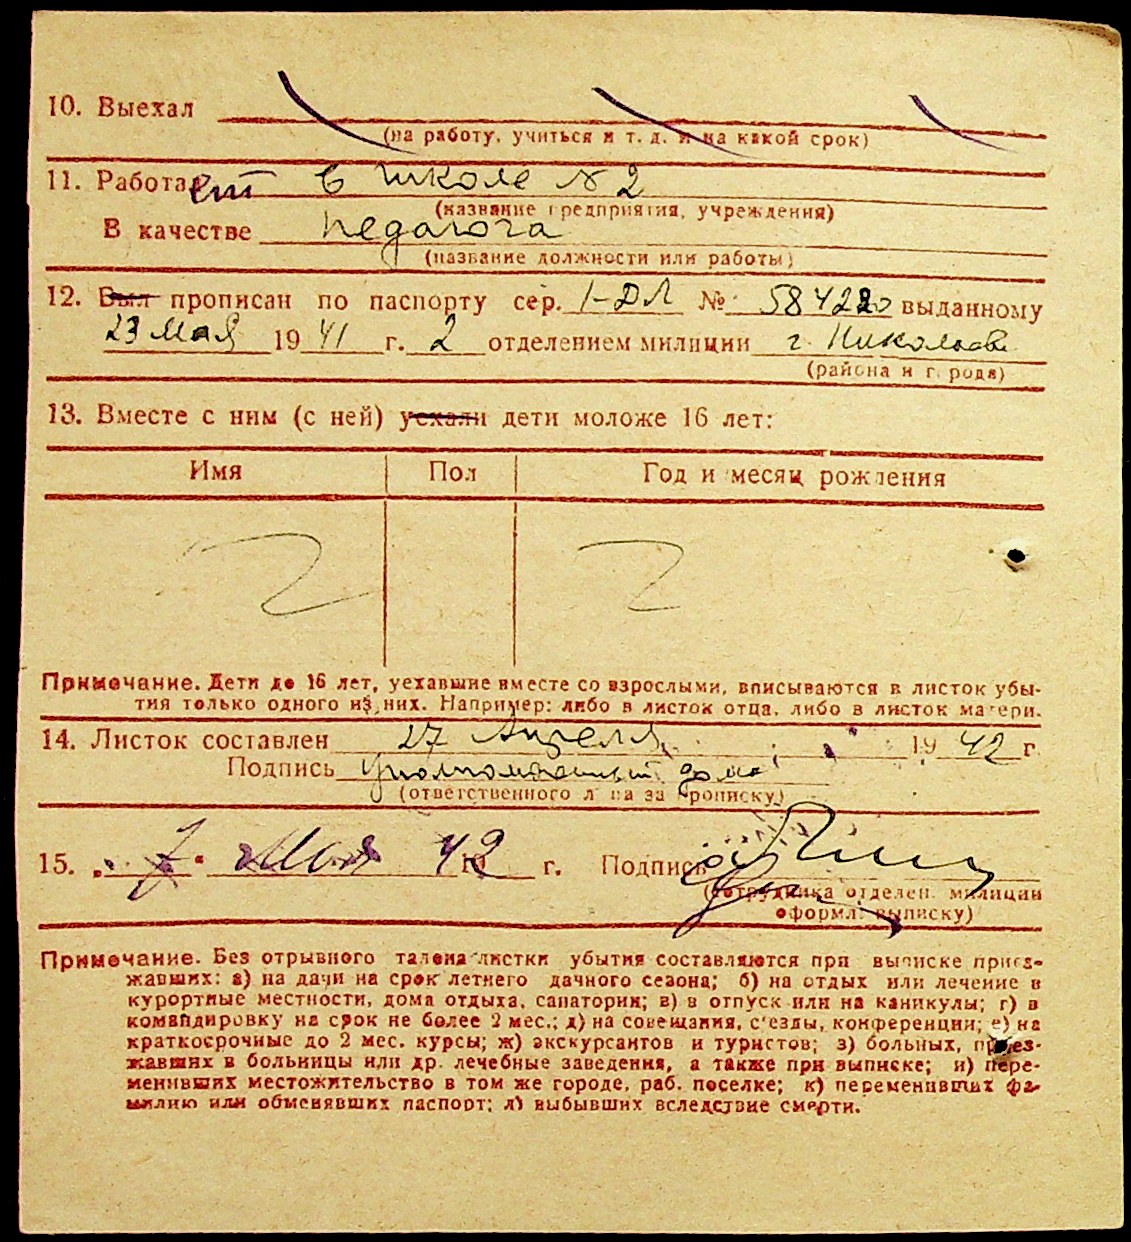 10. Выехал
(на работу, учиться и т. д. и на какой срок)
11. Работает в школе № 2
(название предприятия, учреждения)
В качестве педагога
(название должности или работы)
12. Был прописан по паспорту сер. I-ДЛ № 584220 выданному
23 мая 1941 г. 2 отделением милиции г. Николаев
(района и города)
13. Вместе с ним (с ней) уехали дети моложе 16 лет:
Имя Пол Год и месяц рождения
Примечание. Дети до 16 лет, уехавшие вместе со взрослыми, вписываются в листок убы-
тия только одного из них. Например: либо в листок отца, либо в листок матери.
14. Листок составлен 27 Апреля 1942 г.
Подпись Уполномоченный дома
(ответственного лица за прописку)
15. „7“ Мая 1942 г. Подпись
(сотрудника отделен. милиции
оформл. выписку)
Примечание. Без отрывного талона листки убытия составляются при выписке приез-
жавших: а) на дачи на срок летнего дачного сезона; б) на отдых или лечение в
курортные местности, дома отдыха, санатории; в) в отпуск или на каникулы; г) в
командировку на срок не более 2 мес.; д) на совещания, с'езды, конференции; е) на
краткосрочные до 2 мес. курсы; ж) экскурсантов и туристов; з) больных, приез-
жавших в больницы или др. лечебные заведения, а также при выписке; и) пере-
менивших местожительство в том же городе, раб. поселке; к) переменивших фа-
милию или обменявших паспорт; л) выбывших вследствие смерти.